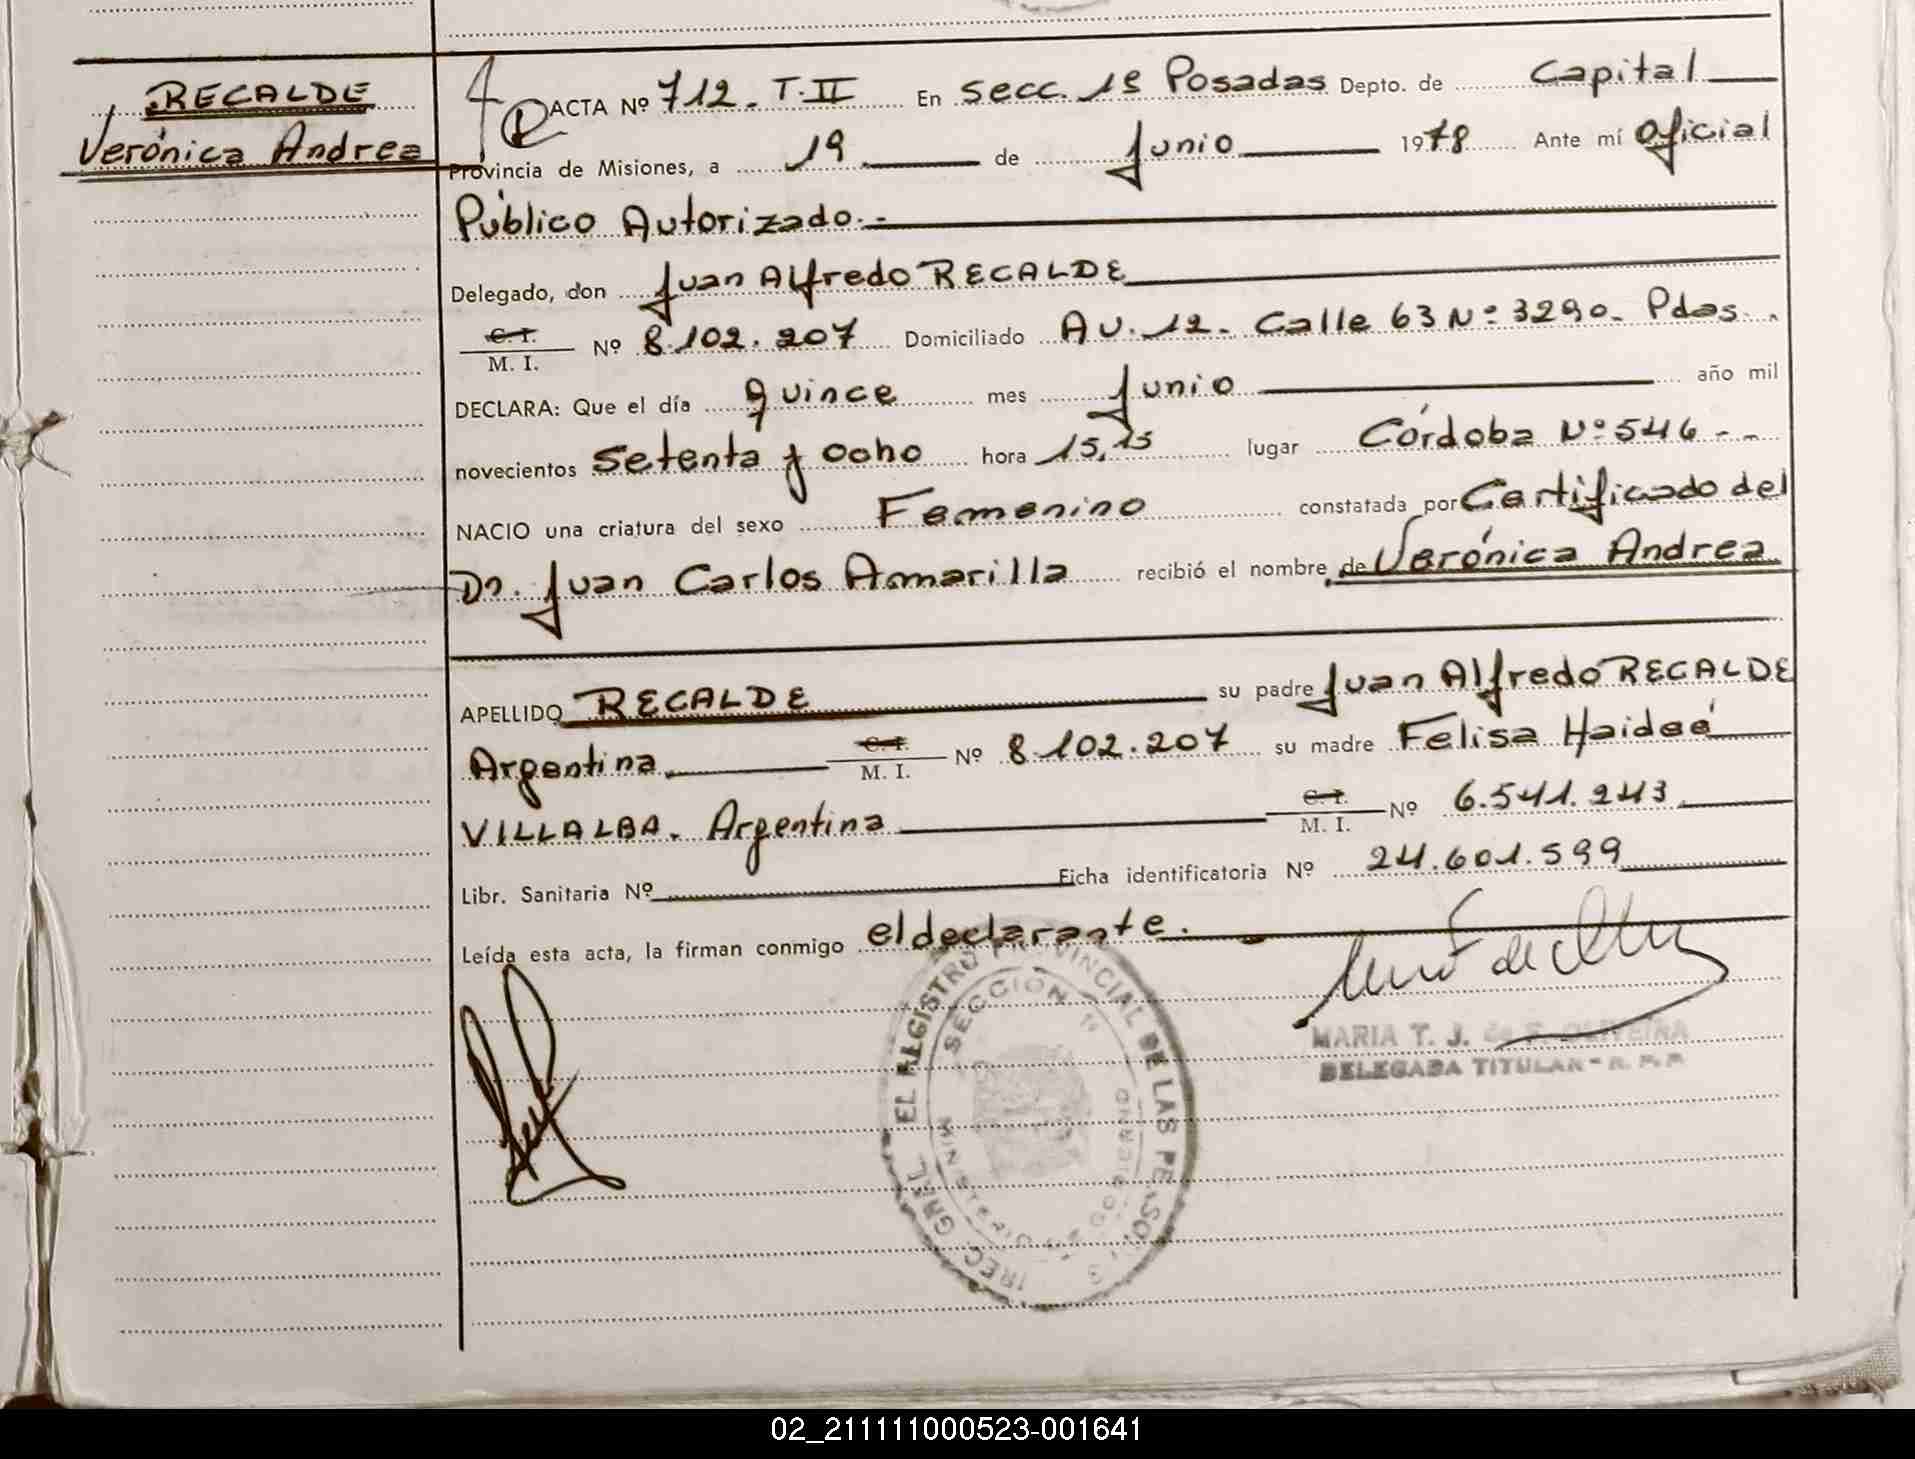 RECALDE
Verónica Andrea
ACTA Nº 712. T.II En secc. 1ª Posadas Depto. de Capital
Provincia de Misiones, a 19 de Junio 1978 Ante mí Oficial
Público Autorizado.-
Delegado, don Juan Alfredo RECALDE
C. I.
M. I. Nº 8.102.207 Domiciliado AV. 12. Calle 63 Nº 3290. Pdas.
DECLARA: Que el día quince mes Junio año mil
novecientos setenta y ocho hora 15,15 lugar Córdoba Nº 546 - -
NACIO una criatura del sexo Femenino constatada por Certificado del
Dr. Juan Carlos Amarilla recibió el nombre de Verónica Andrea
APELLIDO RECALDE su padre Juan Alfredo RECALDE
Argentina C. I. M. I. Nº 8.102.207 su madre Felisa Haideé
VILLALBA. Argentina C. I. M. I. Nº 6.541.243
Libr. Sanitaria Nº Ficha identificatoria Nº 24.601.599
Leída esta acta, la firman conmigo el declarante.
EL REGISTRO PROVINCIAL DE LAS PERSO
SECCION 1ª
MARIA T. J. de F. OLIVEIRA
DELEGADA TITULAR - R. P. P.
02_211111000523-001641